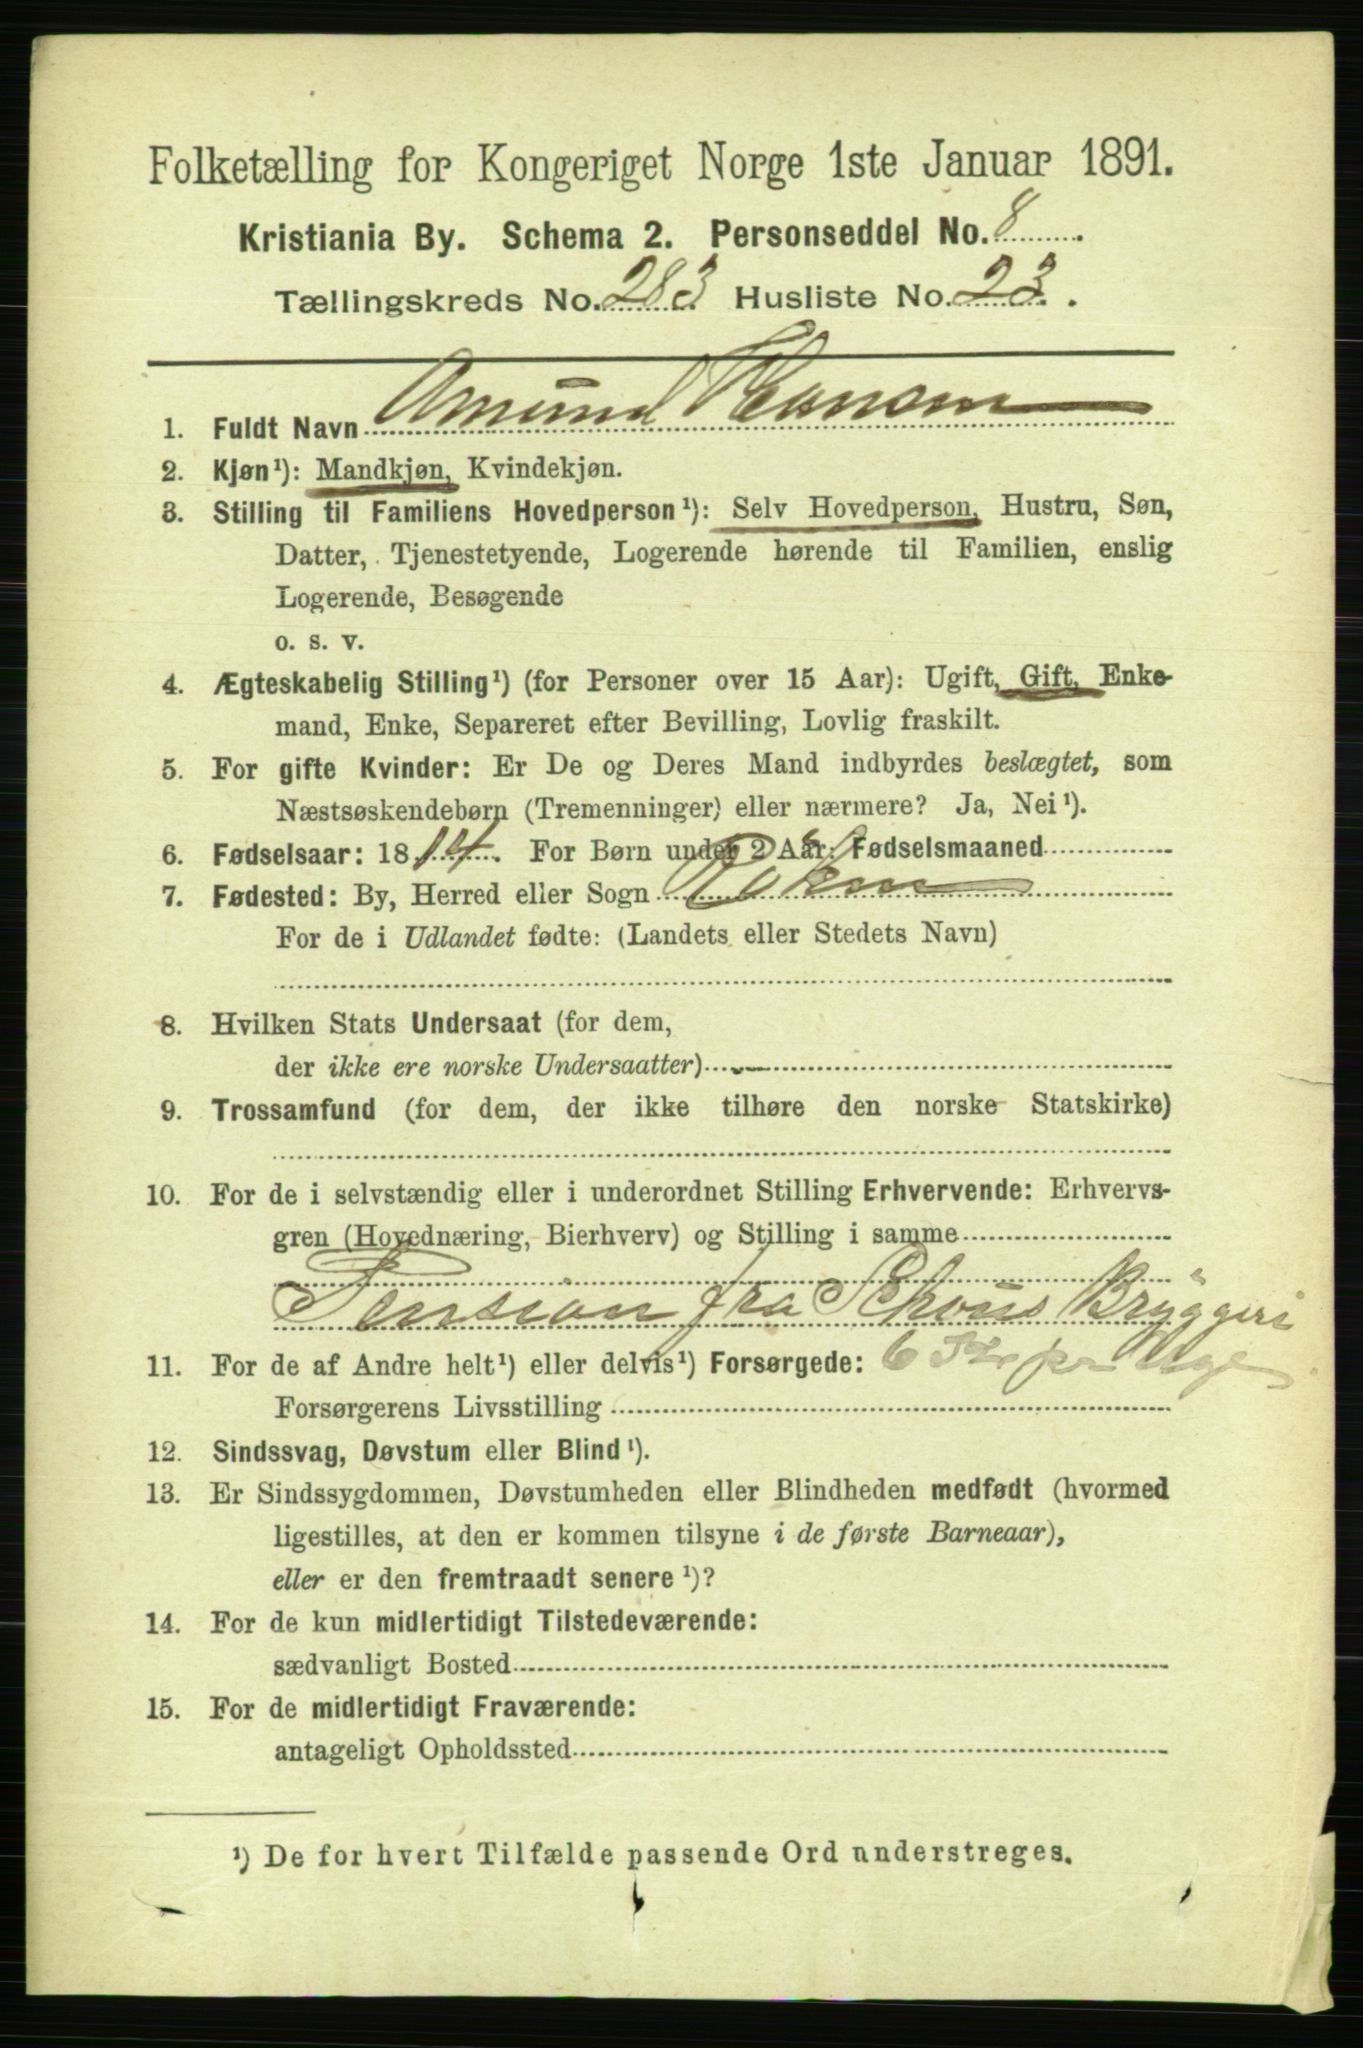 Folketælling for Kongeriget Norge 1ste Januar 1891.
Kristiania By. Schema 2. Personseddel No. 8.
Tællingskreds No. 283 Husliste No. 23.
1. Fuldt Navn Amund Hansen
2. Kjøn¹): Mandkjøn, Kvindekjøn.
3. Stilling til Familiens Hovedperson¹): Selv Hovedperson, Hustru, Søn,
Datter, Tjenestetyende, Logerende hørende til Familien, enslig
Logerende, Besøgende
o. s. v.
4. Ægteskabelig Stilling¹) (for Personer over 15 Aar): Ugift, Gift, Enke-
mand, Enke, Separeret efter Bevilling, Lovlig fraskilt.
5. For gifte Kvinder: Er De og Deres Mand indbyrdes beslægtet, som
Næstsøskendebørn (Tremenninger) eller nærmere? Ja, Nei¹).
6. Fødselsaar: 1814. For Børn under 2 Aar: Fødselsmaaned
7. Fødested: By, Herred eller Sogn
For de i Udlandet fødte: (Landets eller Stedets Navn)
8. Hvilken Stats Undersaat (for dem,
der ikke ere norske Undersaatter)
9. Trossamfund (for dem, der ikke tilhøre den norske Statskirke)
10. For de i selvstændig eller i underordnet Stilling Erhvervende: Erhvervs-
gren (Hovednæring, Bierhverv) og Stilling i samme
Pension fra Schous Bryggeri
11. For de af Andre helt¹) eller delvis¹) Forsørgede: 6 Kr pr Uge
Forsørgerens Livsstilling
12. Sindssvag, Døvstum eller Blind¹).
13. Er Sindssygdommen, Døvstumheden eller Blindheden medfødt (hvormed
ligestilles, at den er kommen tilsyne i de første Barneaar),
eller er den fremtraadt senere¹)?
14. For de kun midlertidigt Tilstedeværende:
sædvanligt Bosted
15. For de midlertidigt Fraværende:
antageligt Opholdssted
¹) De for hvert Tilfælde passende Ord understreges.